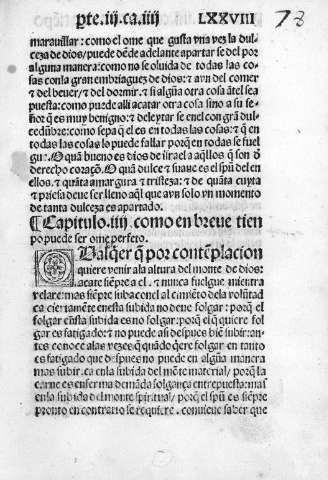 pte.iij.ca.iiij LXXVIII 78
marauillar: como el ome que gusta vna vez la dul-
ceza de dios/puede dẽde adelante apartar se del por
alguna manera: como no se oluida de todas las co-
sas con la gran embriaguez de dios: τ aun del comer
τ del beuer/τ del dormir. τ si algũa otra cosa ãtel sea
puesta: como puede alli acatar otra cosa sino a su se-
ñor q̃ es muy benigno: τ deleytar se en el con grã dul-
cedũbre: como sepa q̃ el es en todas las cosas: τ q̃ en
todas las cosas lo puede fallar porq̃ en todas se fuel
O quã bueno es dios de isrrael a aq̃llos q̃ son ð
derecho coraçõ. O quã dulce τ suaue es el spũ del en
ellos. τ quãta amargura τ tristeza: τ de quãta cuyta
τ priesa deue ser lleno aq̃l que avn solo vn momento
de tanta dulceza es apartado.
¶ Capitulo.iiij. como en breue tien
po puede ser ome perfeto.
Qualq̃er q̃ por contẽplacion
quiere venir ala altura del mõte de dios:
acate siẽpre a el. τ nunca fuelgue mientra
velare: mas siẽpre suba con el al cimiẽto dela volũtad
ca ciertamẽte en esta subida no deue folgar: porq̃ el
folgar en esta subida es no folgar: porq̃ el q̃ quiere fol
gar es fatigado: τ no puede asi despues biẽ subir: an-
tes conoce alas vezes q̃ quãdo q̃ere folgar en tanto
es fatigado que despues no puede en algũa manera
mas subir. ca en la subida del mõte material/porq̃ la
carne es enferma demãda folgança entrepuesta: mas
en la subida del monte spiritual/porq̃ el spũ es siẽpre
pronto en contrario se requiere. conuiene saber que